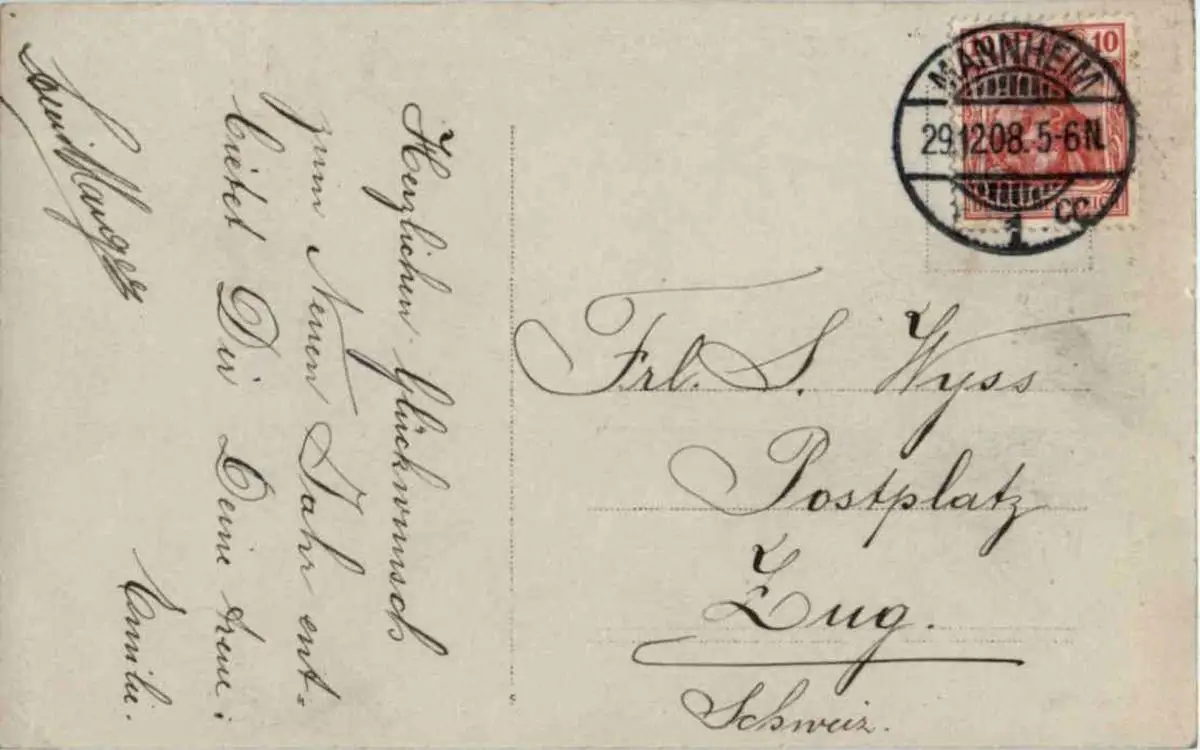 Herzlichen Glückwunsch
zum Neuen Jahr ent=
bietet Dir Deine treue:
Emilie.
10
MANNHEIM
29.12.08. 5-6 N.
1 cc
Frl. S. Wyss
Postplatz
Zug.
Schweiz.